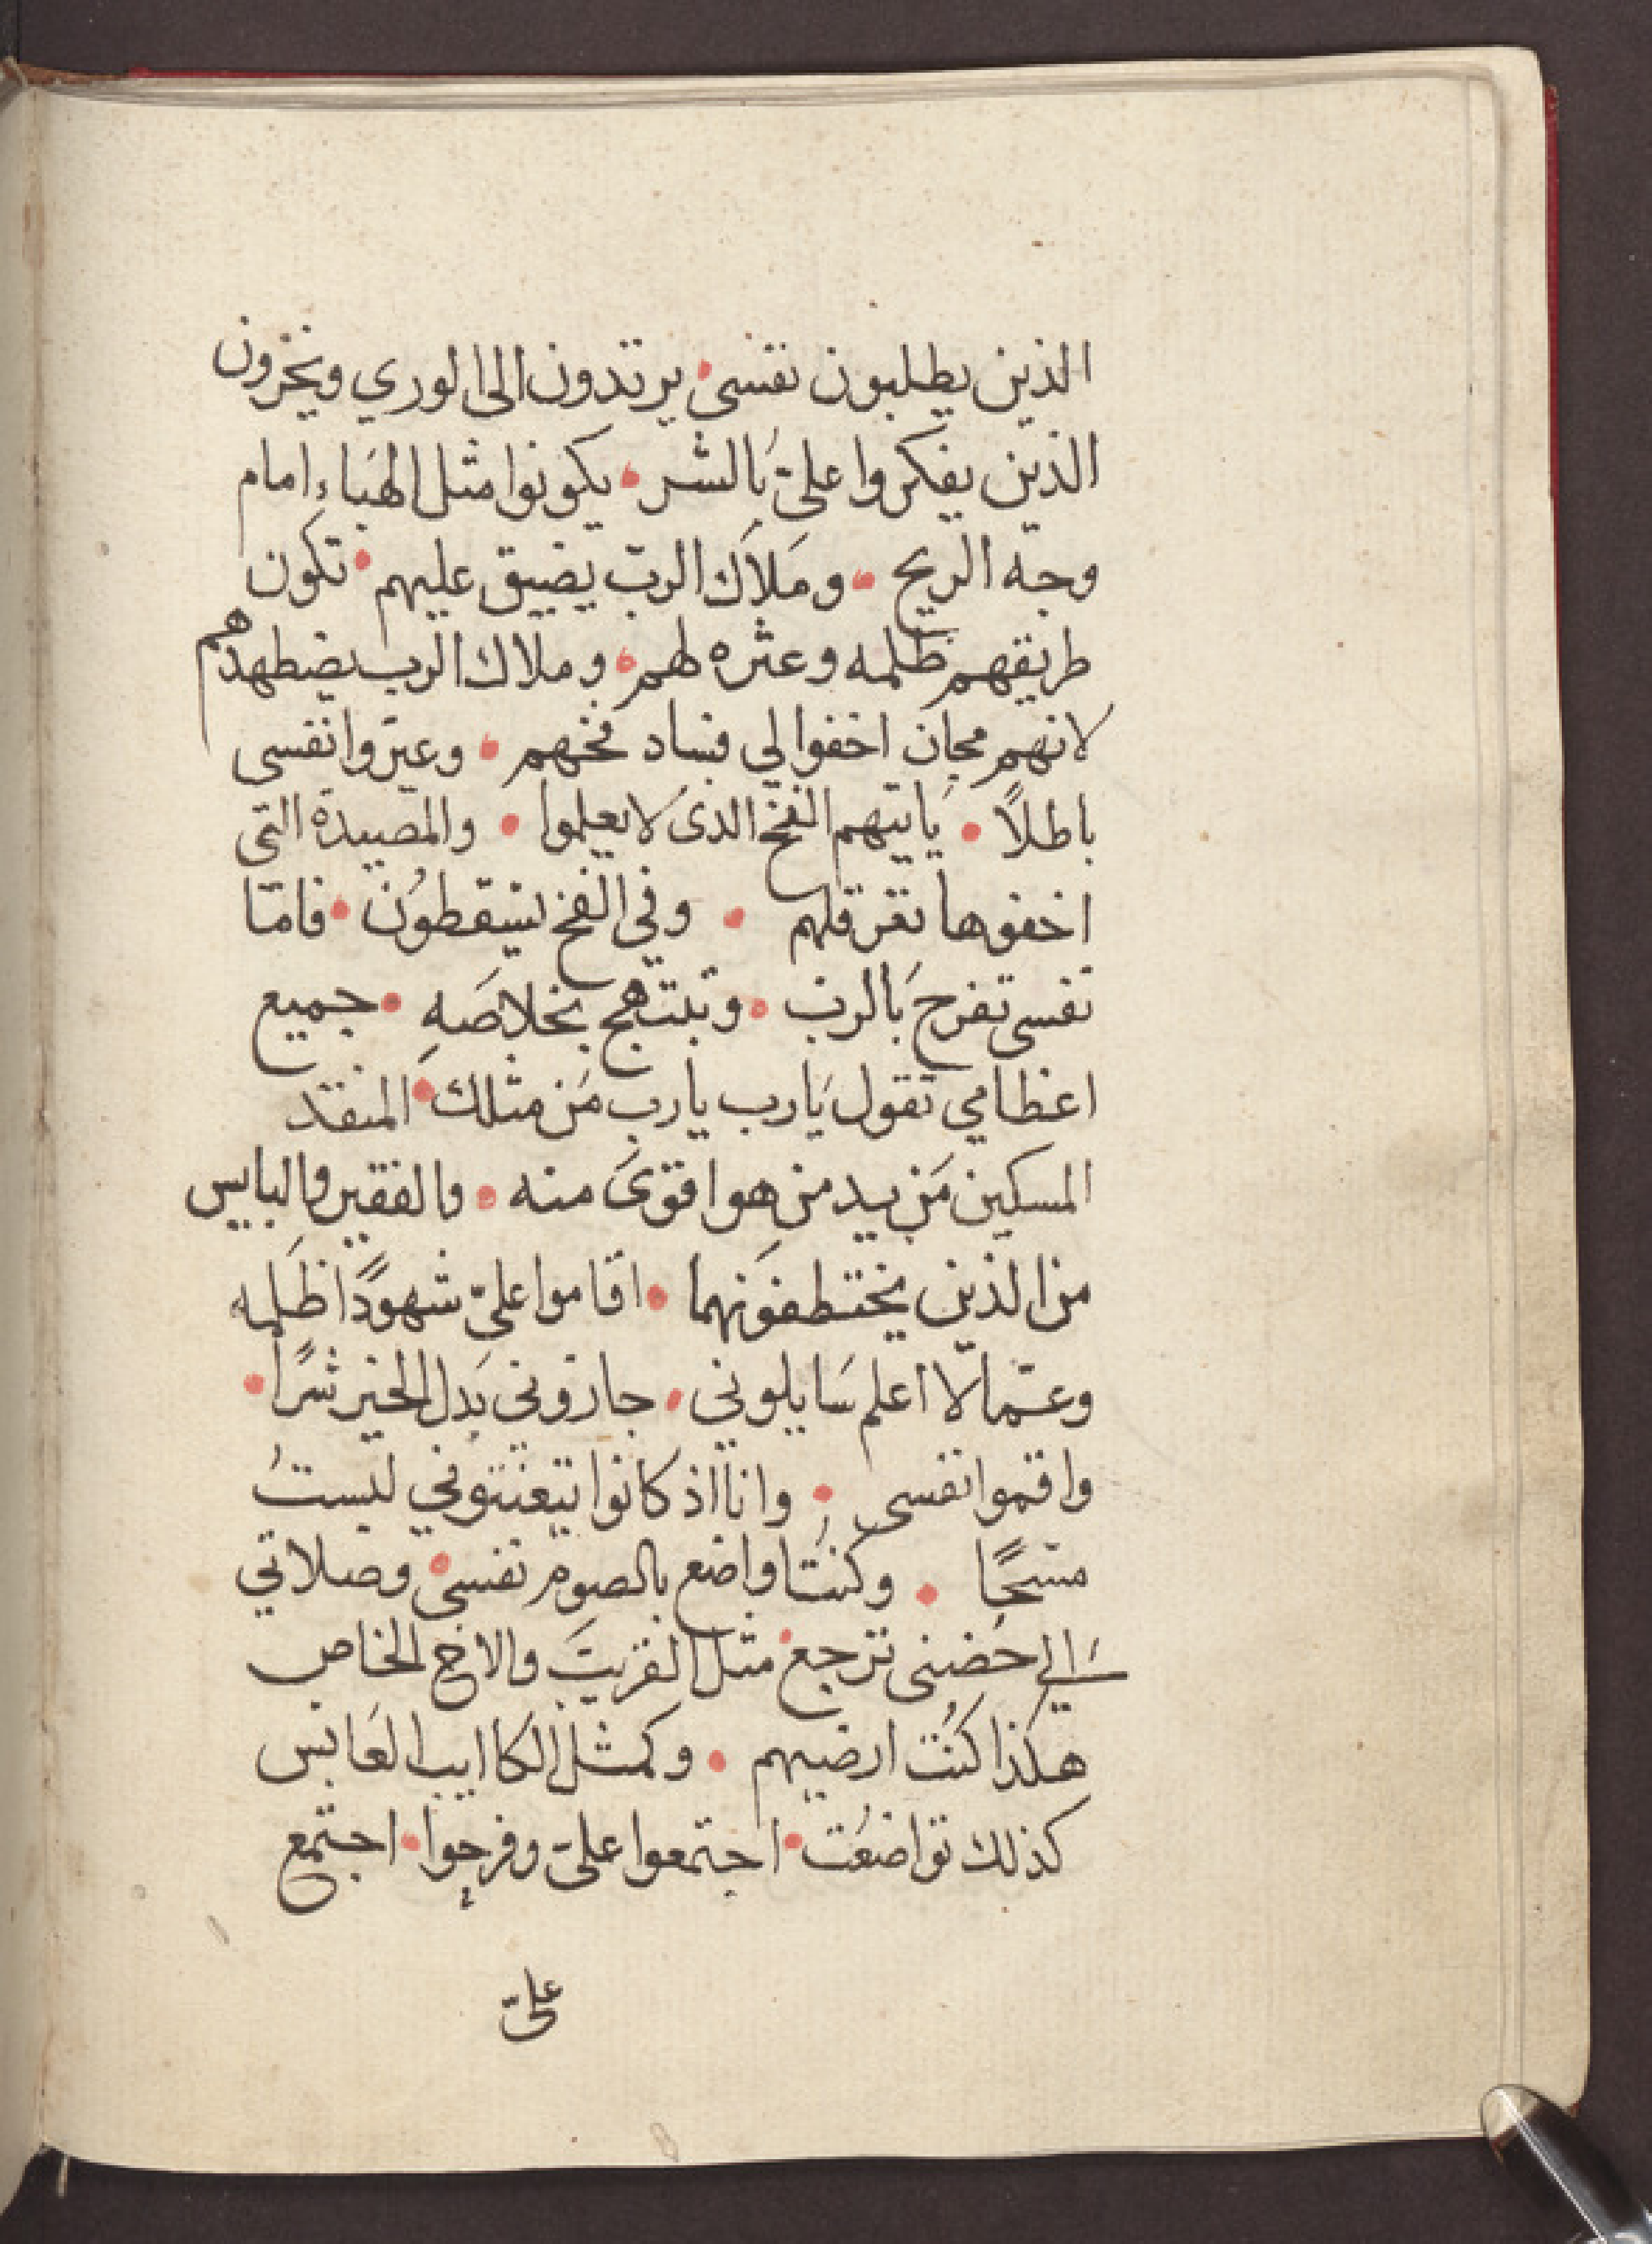 الذين يطلبون نفسى • يرتدون الى الوري ويخزون
الذين يفكروا عليّ بَالشر • يكونوا مثل الهبَاء امام
وجه الريح • ومَلاَك الربّ يضيق عليهم • تكون
طريقهم ظلمه وعثره لهم • وملاك الرب يضطهدهم
لانهم مجان اخفوا لي فساد فخهم • وعيرّوا نفسى
باطلاً • يَاتيهم الفخ الدى لا يعلموا • والمصيدة التى
اخفوها تعرقلهم • وفي الفخ يسقطوُن • فامّا
نفسى تفرح بَالرب • وتبتهج بخلاصَهِ • جميع
اعظامي تقول يَارب يارب مَن مثلك • المنقد
المسكين مَن يد من هو اقوىَ منه • والفقير والبايس
من الذين يختطفوَنهما • اقاموا عليّ شهودًا ظلمه
وعمّا لا اعلم سَايلوني • جازوني بَدل الخير شرًا •
واقموا نفسى • وانا اذ كانوا يتعنتوني لبستُ
مسحًا • وكنتُ اواضع بالصوم نفسى • وصلاتي
الي حُضنى ترجع • مثل القريبَ والاخ الخاص
هكذا كُنت ارضيهم • وكمثل الكاايب العَابس
كذلك تواضعُت • اجتمعوا عليّ وفرحوا • اجتمع
عليّ